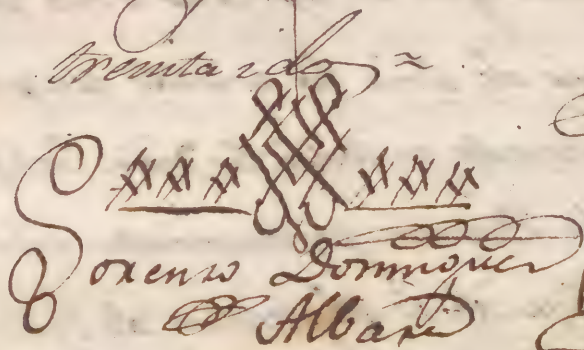 treinta i dos
Lorenzo Dominguez
Albar